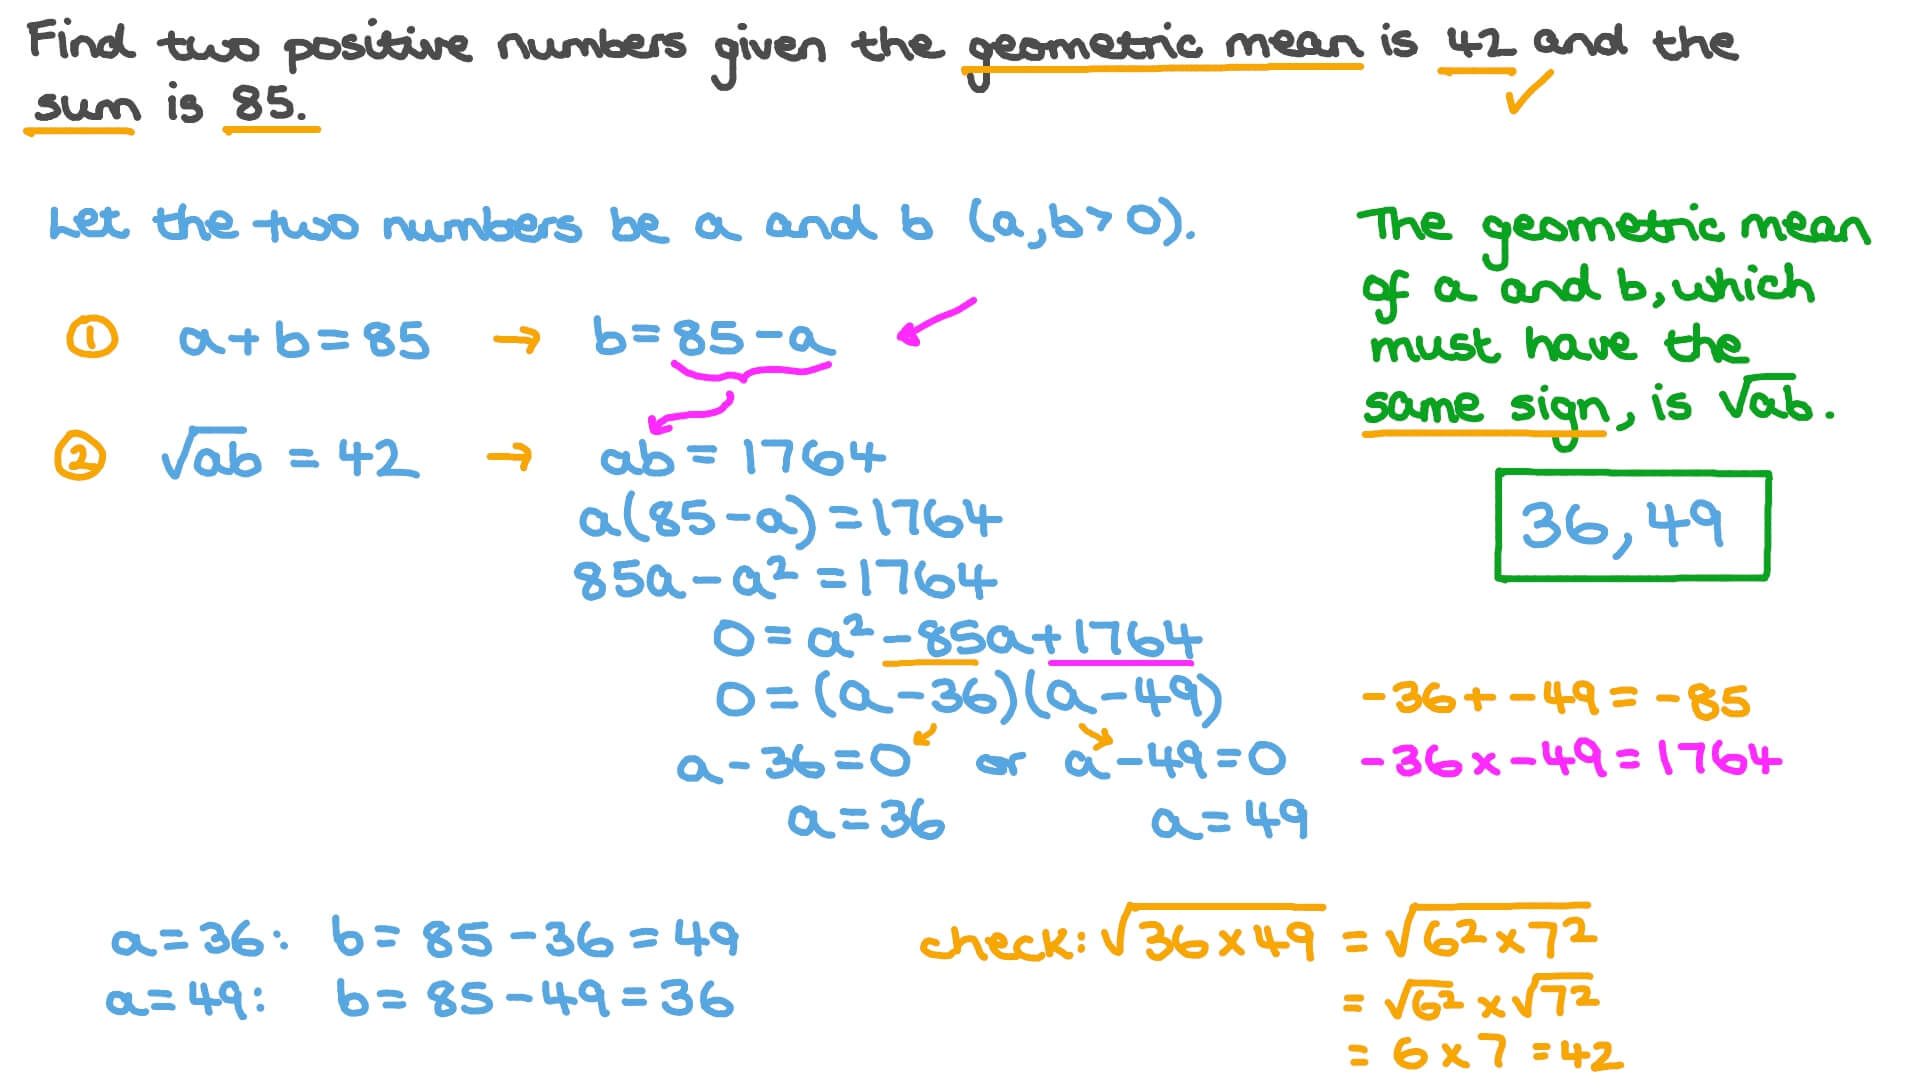 Find two positive numbers given the geometric mean is 42 and the
sum is 85. ✓
Let the two numbers be a and b (a,b>0).
① a+b=85 → b=85-a
② √ab = 42 → ab=1764
a(85-a)=1764
85a-a²=1764
0=a²-85a+1764
0=(a-36)(a-49)
a-36=0 or a-49=0
a=36 a=49
The geometric mean
of a and b, which
must have the
same sign, is √ab.
36, 49
-36+-49=-85
-36×-49=1764
a=36: b=85-36=49
a=49: b=85-49=36
check: √36×49 = √6²×7²
= √6² × √7²
= 6×7 =42